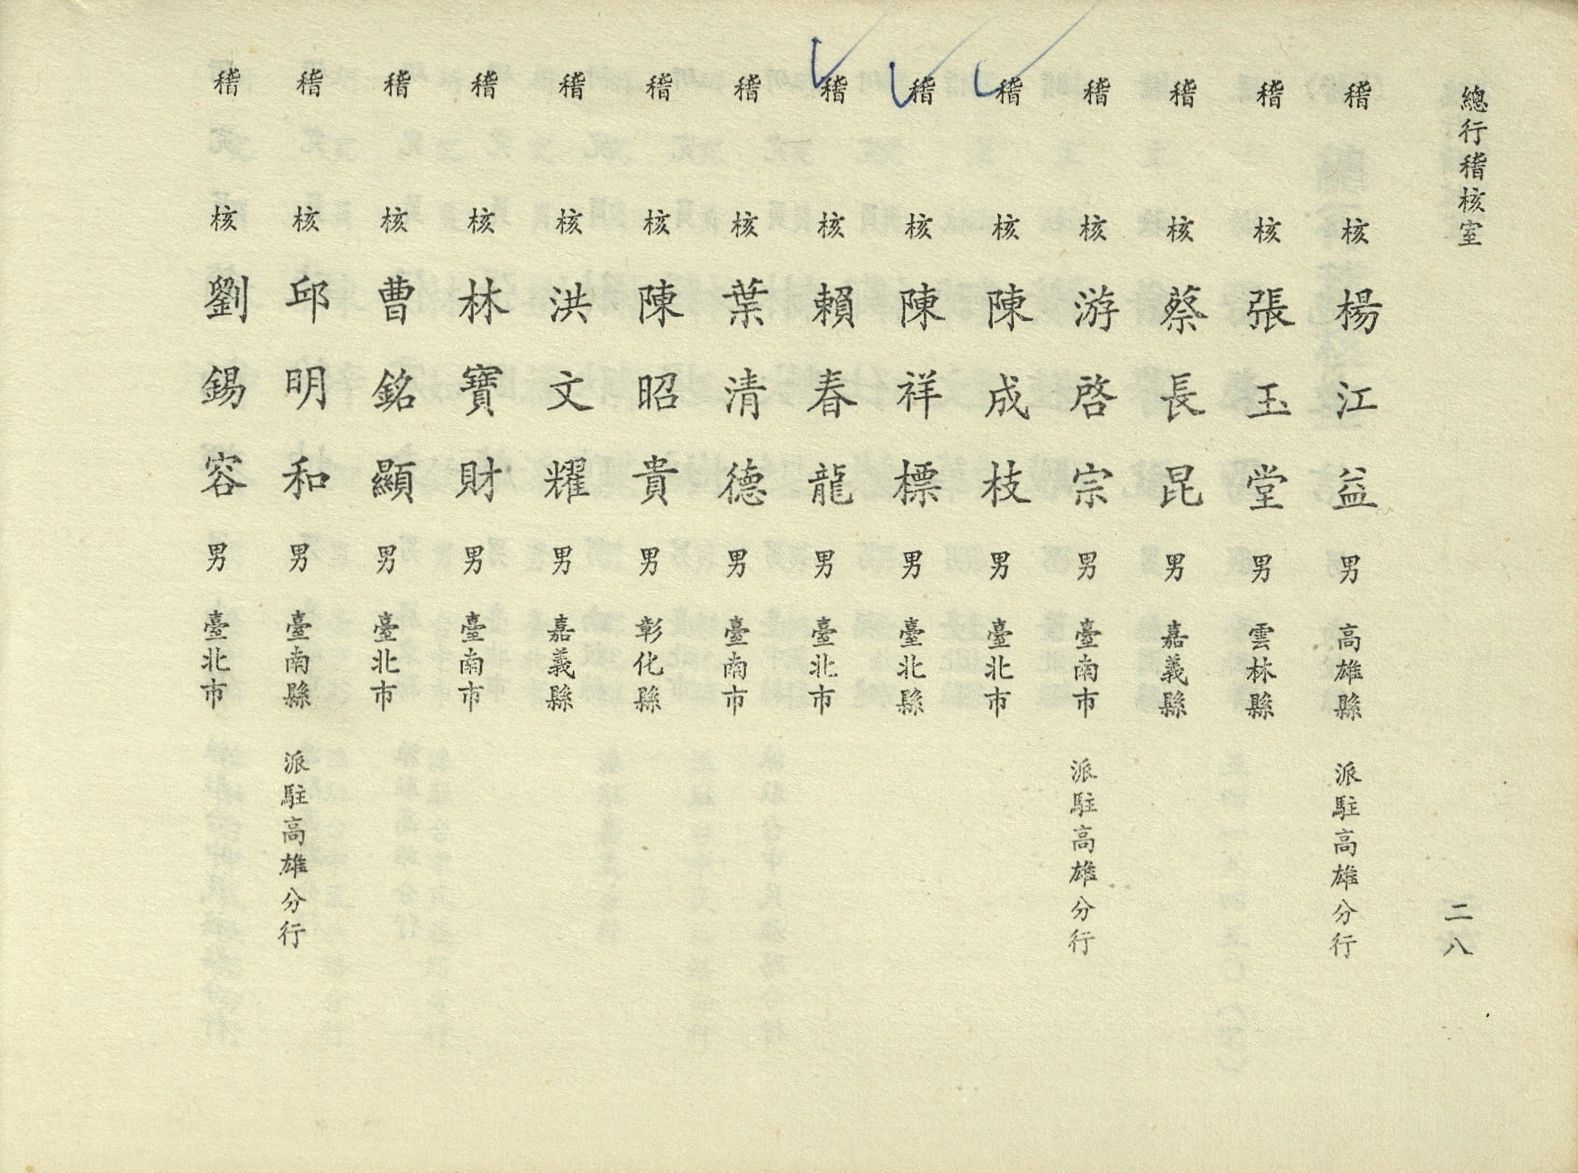 總行稽核室
二八
稽核 楊江益 男 高雄縣 派駐高雄分行
稽核 張玉堂 男 雲林縣
稽核 蔡長昆 男 嘉義縣
稽核 游啓宗 男 臺南市 派駐高雄分行
稽核 陳成枝 男 臺北市
稽核 陳祥標 男 臺北縣
稽核 賴春龍 男 臺北市
稽核 葉清德 男 臺南市
稽核 陳昭貴 男 彰化縣
稽核 洪文耀 男 嘉義縣
稽核 林寶財 男 臺南市
稽核 曹銘顯 男 臺北市
稽核 邱明和 男 臺南縣 派駐高雄分行
稽核 劉錫容 男 臺北市